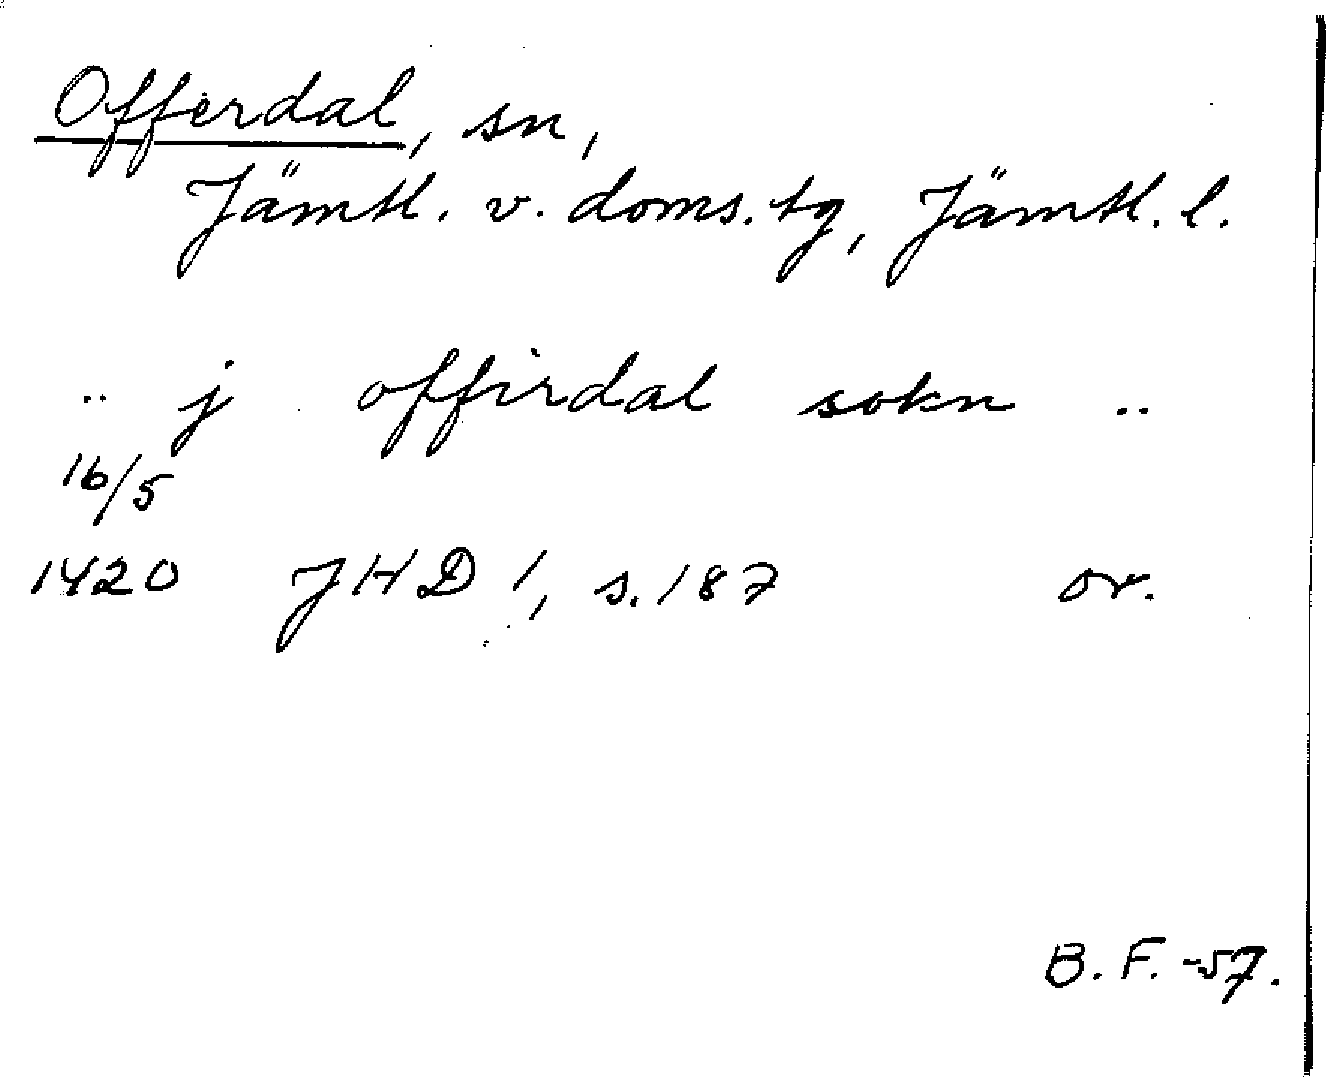 Offerdal, sn,
Jämtl. v. doms. tg, Jämtl. l.
.. j offirdal sokn ..
16/5
1420 JHD 1, s. 187 or.
B. F. -57.